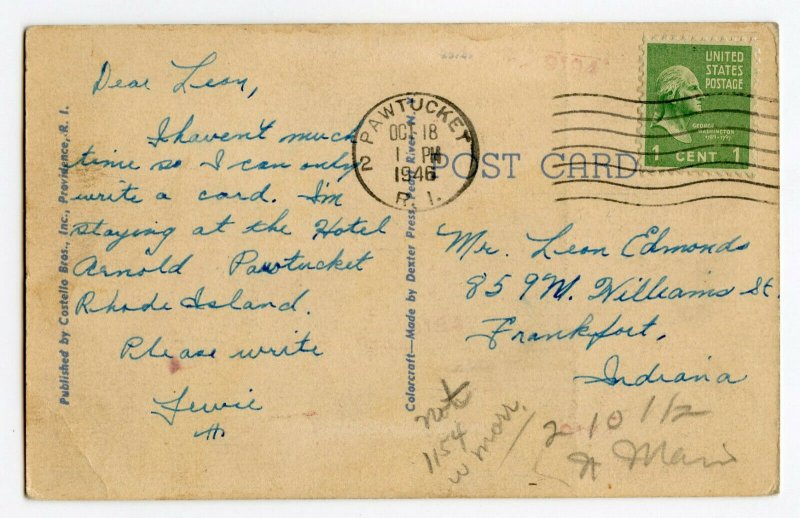 Dear Leon,
I haven't much
time so I can only
write a card. I'm
staying at the Hotel
Arnold Pawtucket
Rhode Island.
Please write
Lewie
Published by Costello Bros., Inc., Providence, R. I.
Colorcraft—Made by Dexter Press, Pearl River, N.
PAWTUCKET
2
OCT 18
1 PM
1946
R. I.
POST CARD
UNITED
STATES
POSTAGE
GEORGE
WASHINGTON
1789-1797
1 CENT 1
Mr. Leon Edmonds
859 N. Williams St.
Frankfort,
Indiana
not
1154
w morr.
210 1/2
N Main